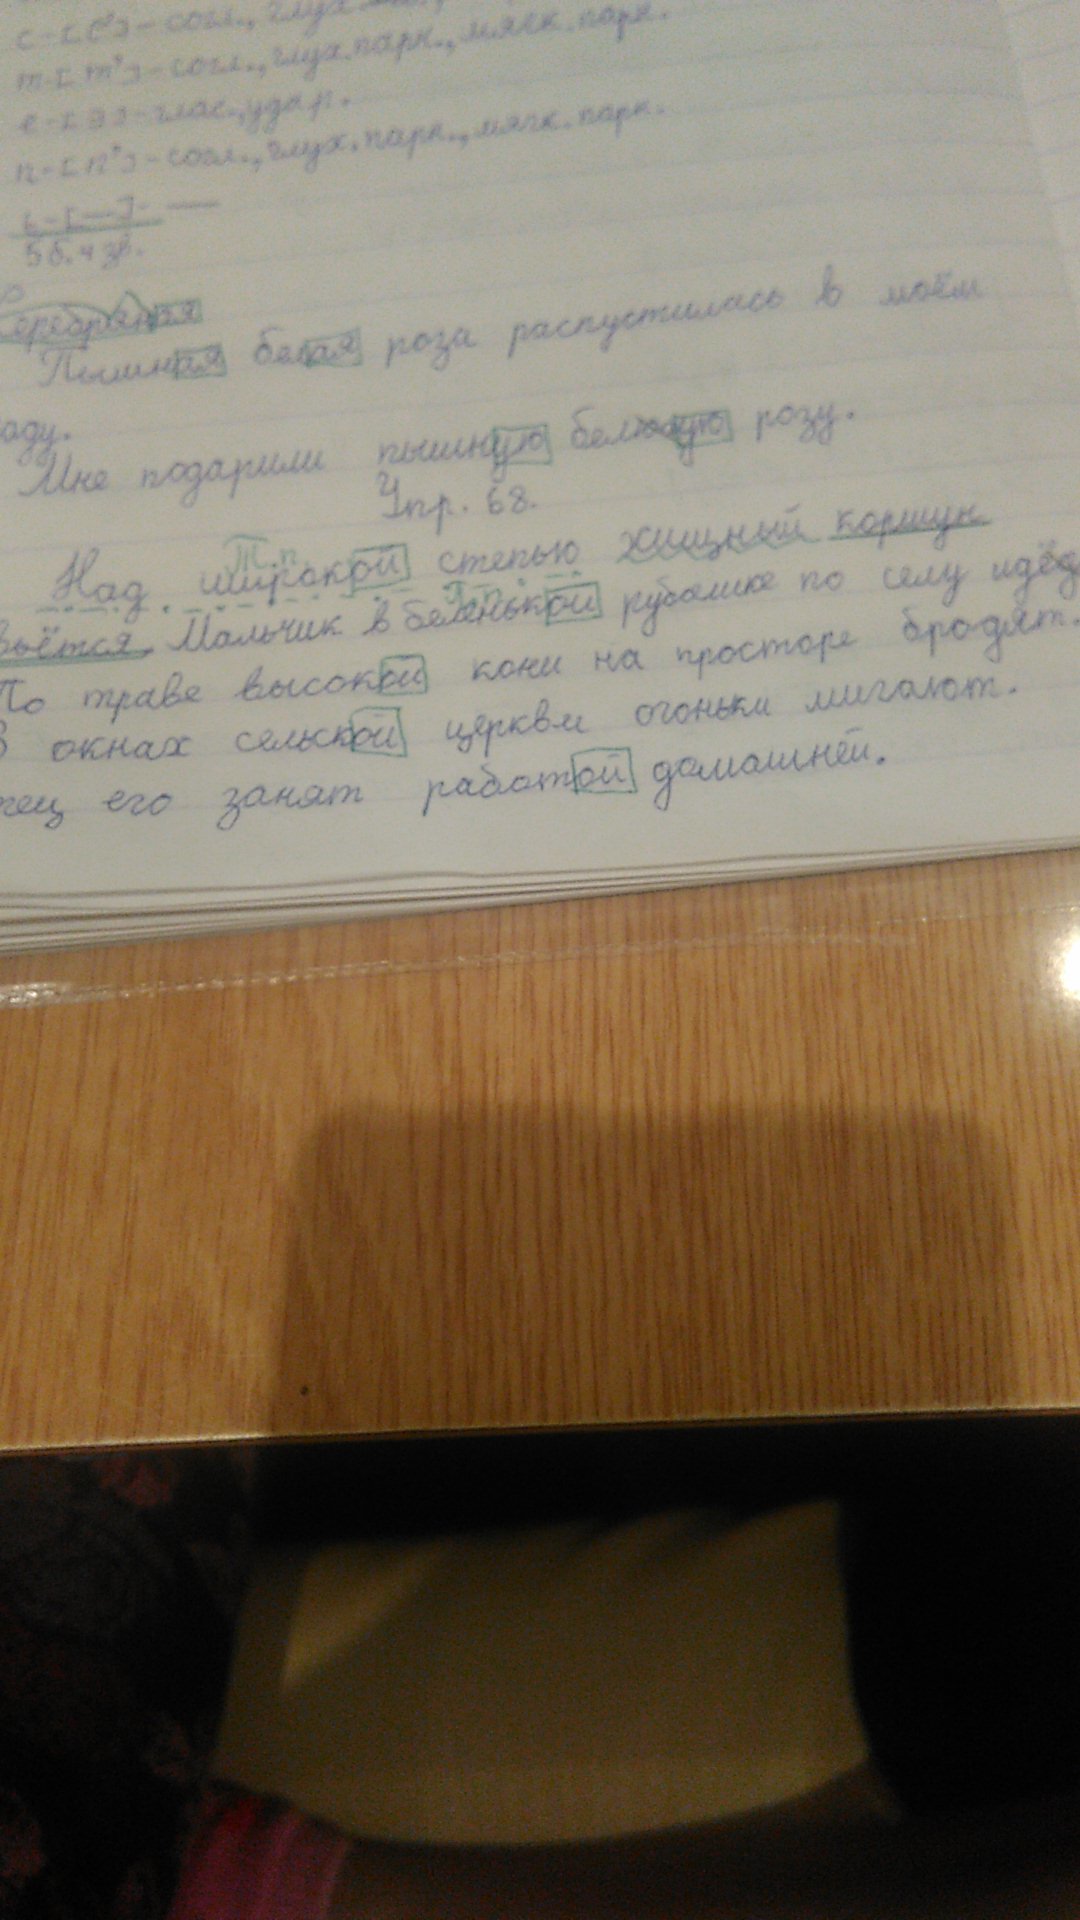 с-[с']-согл., глух.
т-[т']-согл., глух.парн., мягк.парн.
е-[э]-глас., удар.
п-[п']-согл., глух.парн., мягк.парн.
ь-[—]- —
5 б. 4 зв.
Серебряная
Пышная белая роза распустилась в моём
аду.
Мне подарили пышную белую розу.
Упр. 68.
Т.п. 
Над широкой степью хищный коршун
вьётся. Мальчик в беленькой рубашке по селу идёт
По траве высокой кони на просторе бродят.
В окнах сельской церкви огоньки мигают.
тец его занят работой домашней.